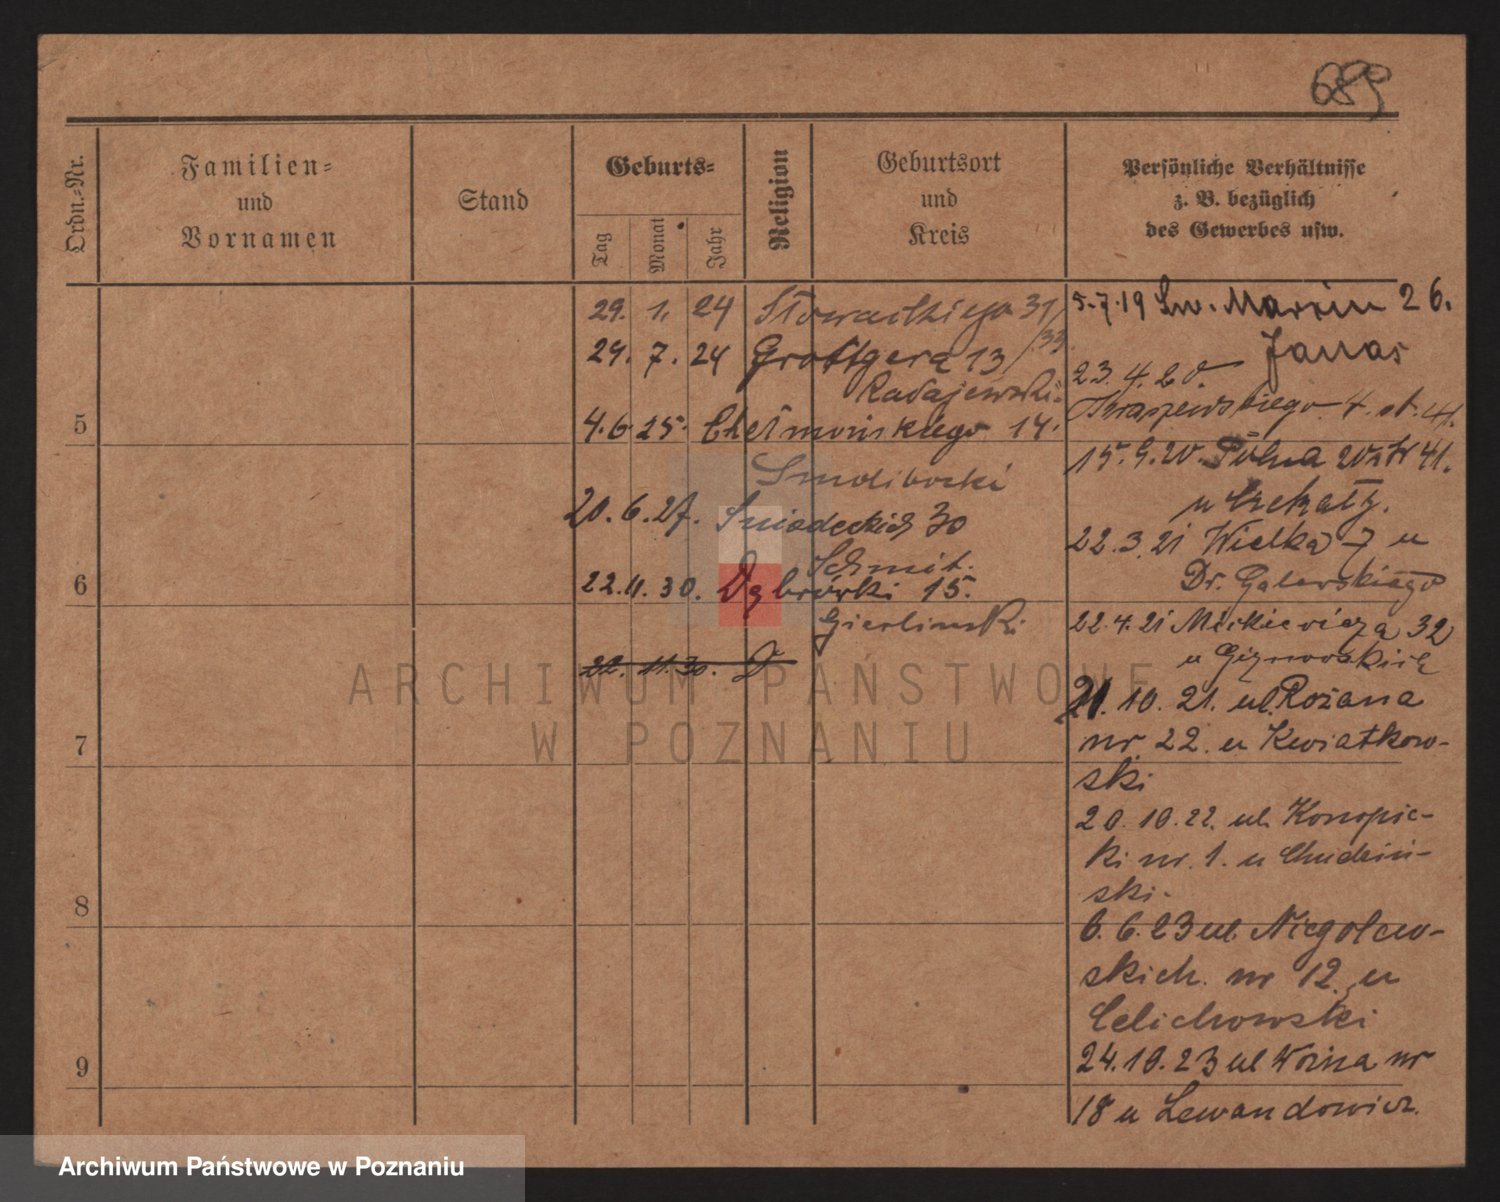 689
Ordn.-Nr.
Familien-
und
Vornamen
Stand
Geburts-
Tag
Monat
Jahr
Religion
Geburtsort
und
Kreis
Persönliche Verhältnisse
z. B. bezüglich
des Gewerbes usw.
29. 1. 24 Słowackiego 31/
33.
29. 7. 24 Grottgera 13
Radajewski
5
4.6.25. Chełmońskiego 14.
20.6.27. Śniadeckich 30
Schmit.
6
22.11.30. Dąbrówki 15.
Gierliński
22. 11. 30. D
7
8
9
5.7.19 Św. Marcin 26.
Janas
23.4.20.
Kraszewskiego 4. st. 41.
15.9.20. Polna 20
u
22.3.21 Wielka 7 u
Dr. Galewskiego
22.4.21 Mickiewicza 32
u
21. 10. 21. ul. Rożana
nr 22. u Kwiatkow-
ski
20. 10. 22. ul. Konopic-
ki nr. 1. u Chudziń-
ski.
6. 6. 23 ul. Niegolew-
skich. nr 12. u
Celichowski
24.10.23 ul Woźna nr
18 u Lewandowicz.
ARCHIWUM PAŃSTWOWE
W POZNANIU
Archiwum Państwowe w Poznaniu